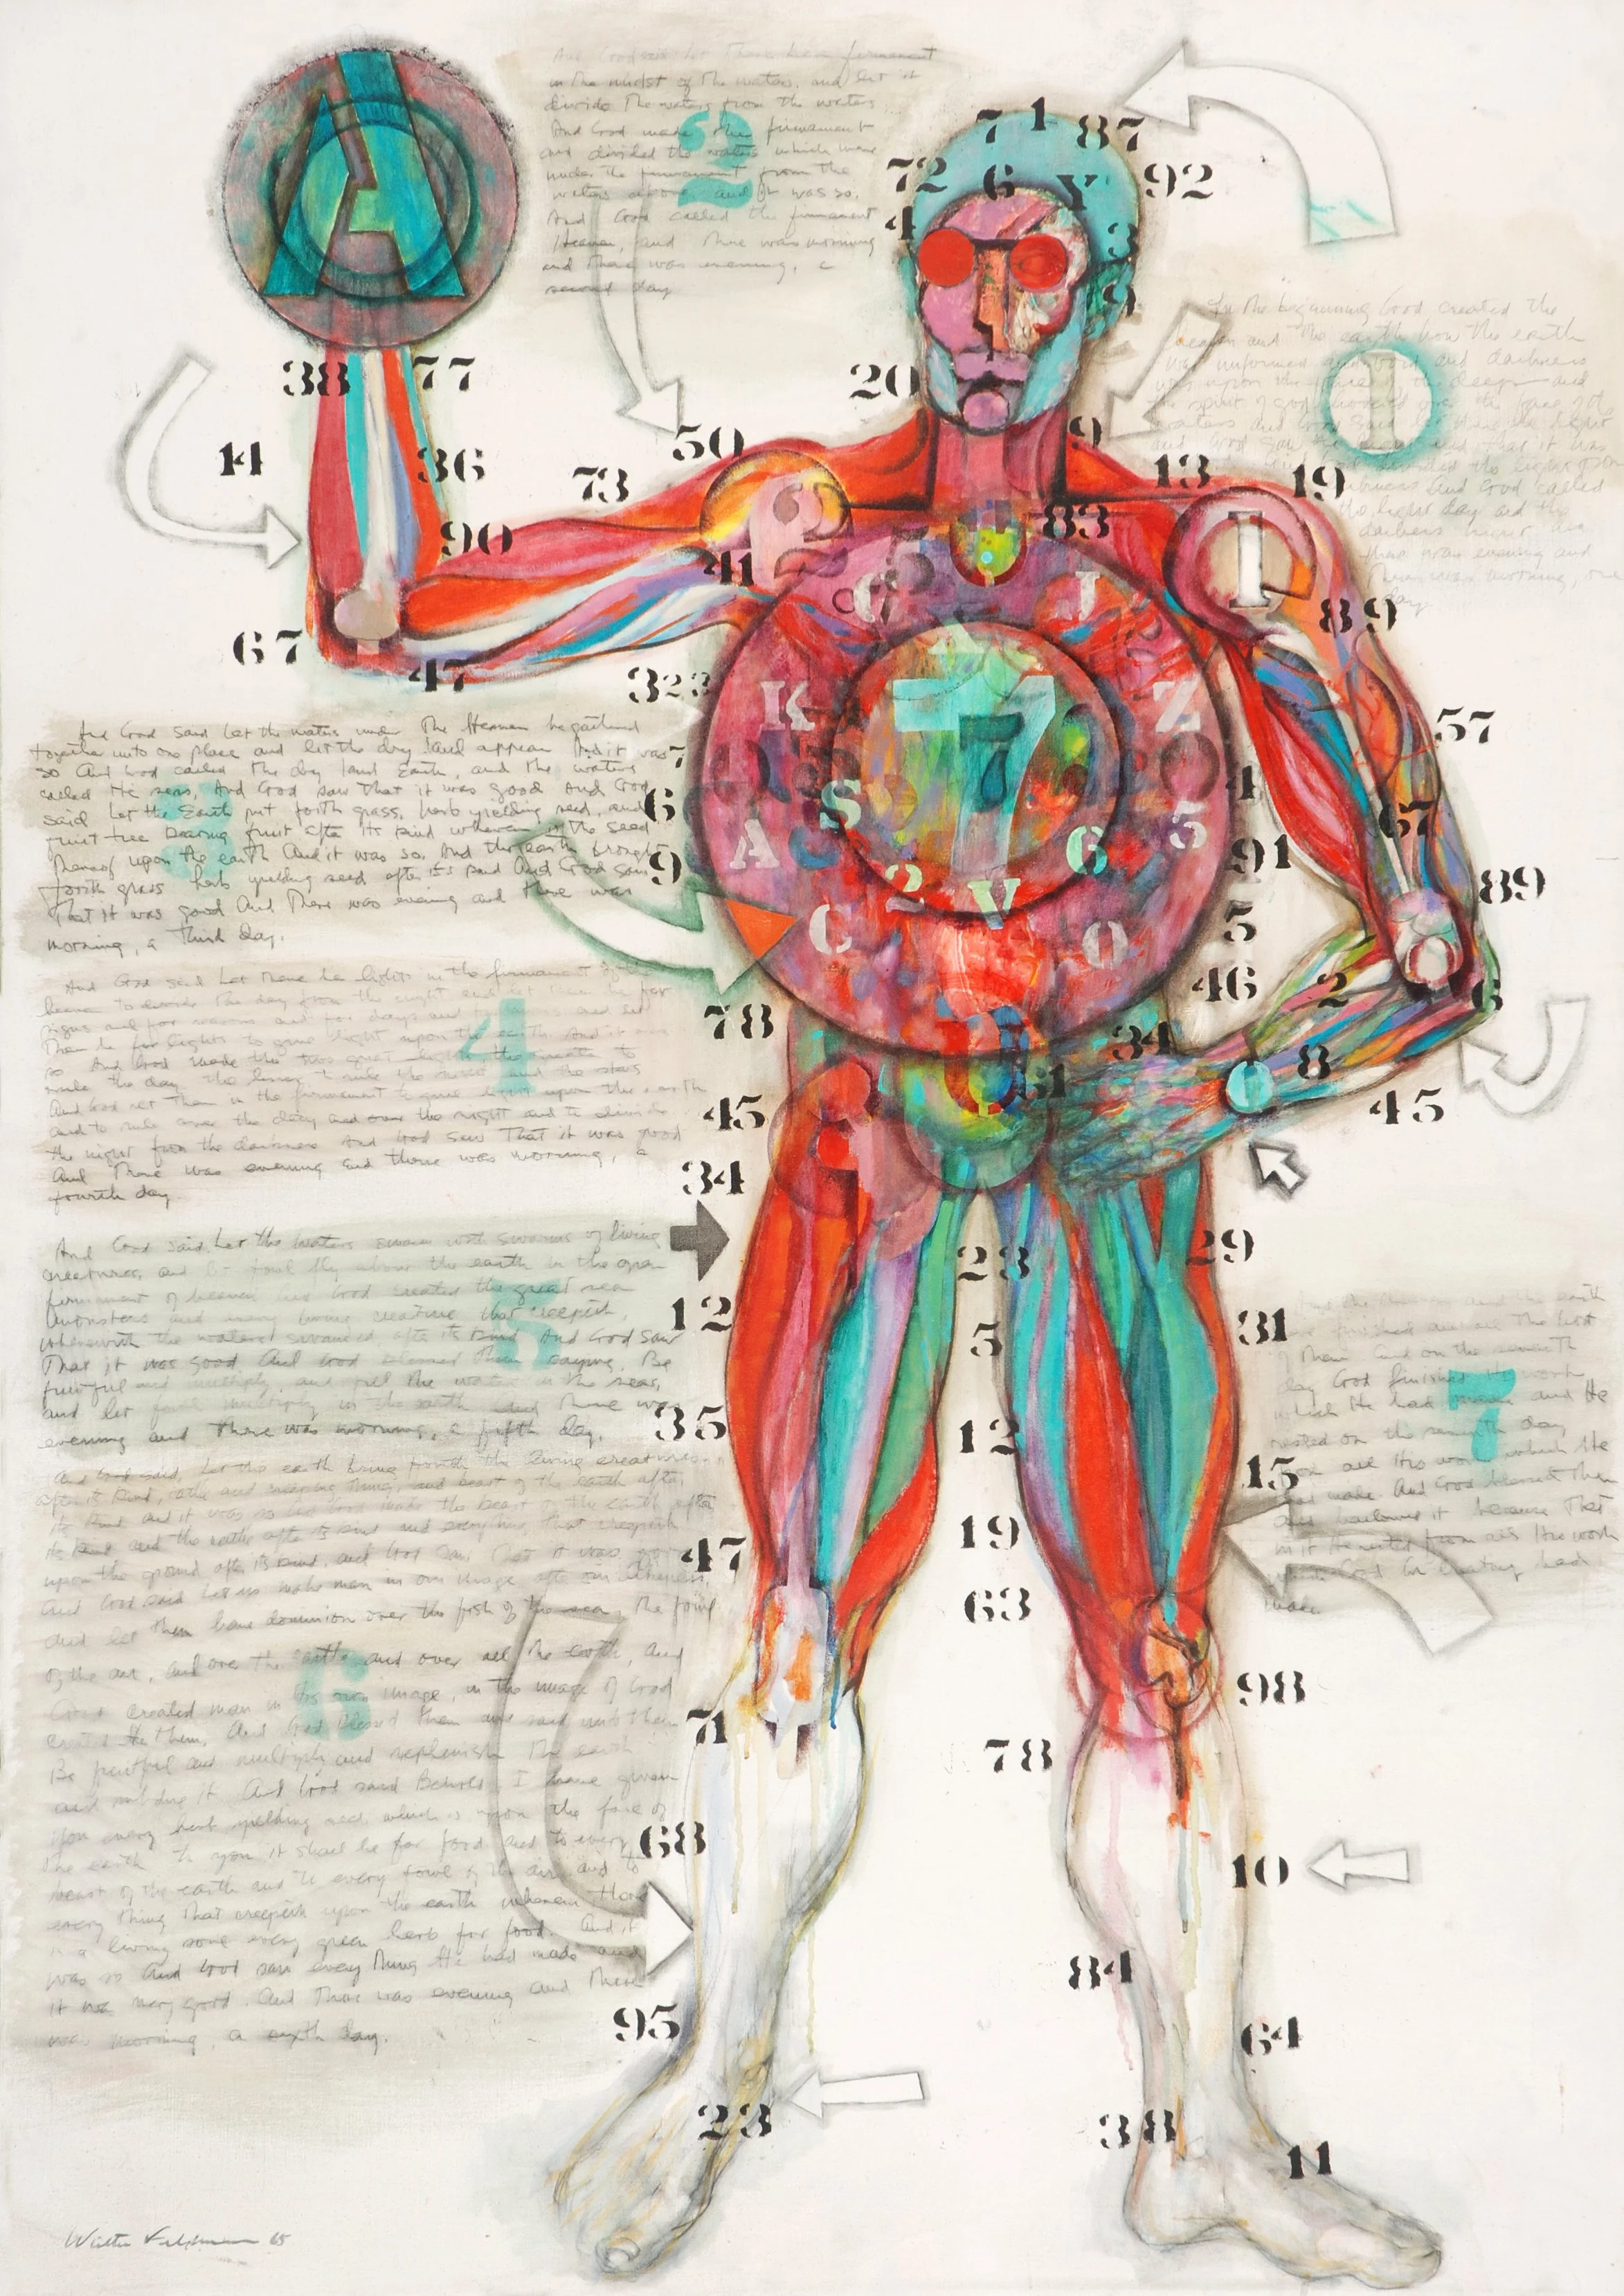 A
And God said let there be a firmament
in the midst of the waters, and let it
divide the waters from the waters
And God made the firmament
and divided the waters which were
under the firmament from the
waters above and it was so.
And God called the firmament
Heaven, and there was morning
and there was evening, a
second day
2
7 1 87
72 6 Y 92
4 3
9
In the beginning God created the
heaven and the earth now the earth
was unformed and void and darkness
was upon the face of the deep and
the spirit of god hovered over the face of the
waters and God said let there be light
the light day and the
darkness night and
there was evening and
there was morning, one
day
38 77
20
14 36
50 9
73 13 19
90 83
41 I
89
67 47
32 23
G J
K Z
7 7
S 6 5
A 2 V
C O
57
7
6
9
1
67
91
89
5
46 2 6
And God said Let the waters under the Heaven be gathered
together unto one place and let the dry land appear And it was
so And God called the dry land Earth, and the waters
called He seas, And God saw that it was good And God
said Let the Earth put forth grass, herb yielding seed, and
fruit tree bearing fruit after its kind wherein is the seed
thereof upon the earth And it was so. And the earth brought
forth grass herb yielding seed after its kind And God saw
That it was good And There was evening and there was
morning, a third day.
And God said Let there be lights in the firmament of the
heaven to divide the day from the night and let them be for
signs and for seasons and for days and
Them be for lights to give light upon the earth. And it was
so And God made the two great lights the greater to
rule the day, the lesser to rule the night and the stars
And God set Them in the firmament to give light upon the earth
and to rule over the day and over the night and to divide
the night from the darkness And God saw That it was good
And There was evening and there was morning, a
fourth day.
4
78 34
8
45 51 45
34
And God said. Let the waters swarm with swarms of living
creatures, and let fowl fly above the earth in the open
firmament of heaven And God created the great sea
monsters and every living creature that creepeth,
wherewith the waters swarmed after its kind And God saw
That it was good And God blessed Them saying. Be
fruitful and multiply, and fill the waters in the seas,
and let fowl multiply in the earth and there was
evening and there was morning, a fifth day.
5
23 29
12 31
5
35 12
15
47 19
63
98
71 78
68 10
84
95 64
23 38 11
And God said, Let the earth bring forth the living creatures
after its kind, cattle and creeping thing, and beast of the earth after
its kind and it was so And God made the beast of the earth after
its kind and the cattle after its kind and everything That creepeth
upon the ground after its kind, and God saw That it was good
And God said Let us make man in our image after our likeness,
and let them have dominion over the fish of the sea, the fowl
of the air, and over the cattle and over all the earth, and
God created man in His own image, in the image of God
created He Them, And God blessed Them and said unto Them
Be fruitful and multiply and replenish The earth
and subdue it And God said Behold, I have given
you every herb yielding seed which is upon the face of
the earth to you it shall be for food and to every
beast of the earth and to every fowl of the air and to
every thing That creepeth upon the earth wherein there
is a living soul every green herb for food. And it
was so And God saw every thing He had made and
it was very good. And There was evening and There
was morning, a sixth day.
6
the heaven and the earth
were finished and all the host
of them And on the seventh
day God finished His work
which He had made and He
rested on the seventh day
from all His work which He
had made. And God blessed the
and hallowed it because That
in it He rested from all His work
which God in creating had
made
7
Walter Feldman 65